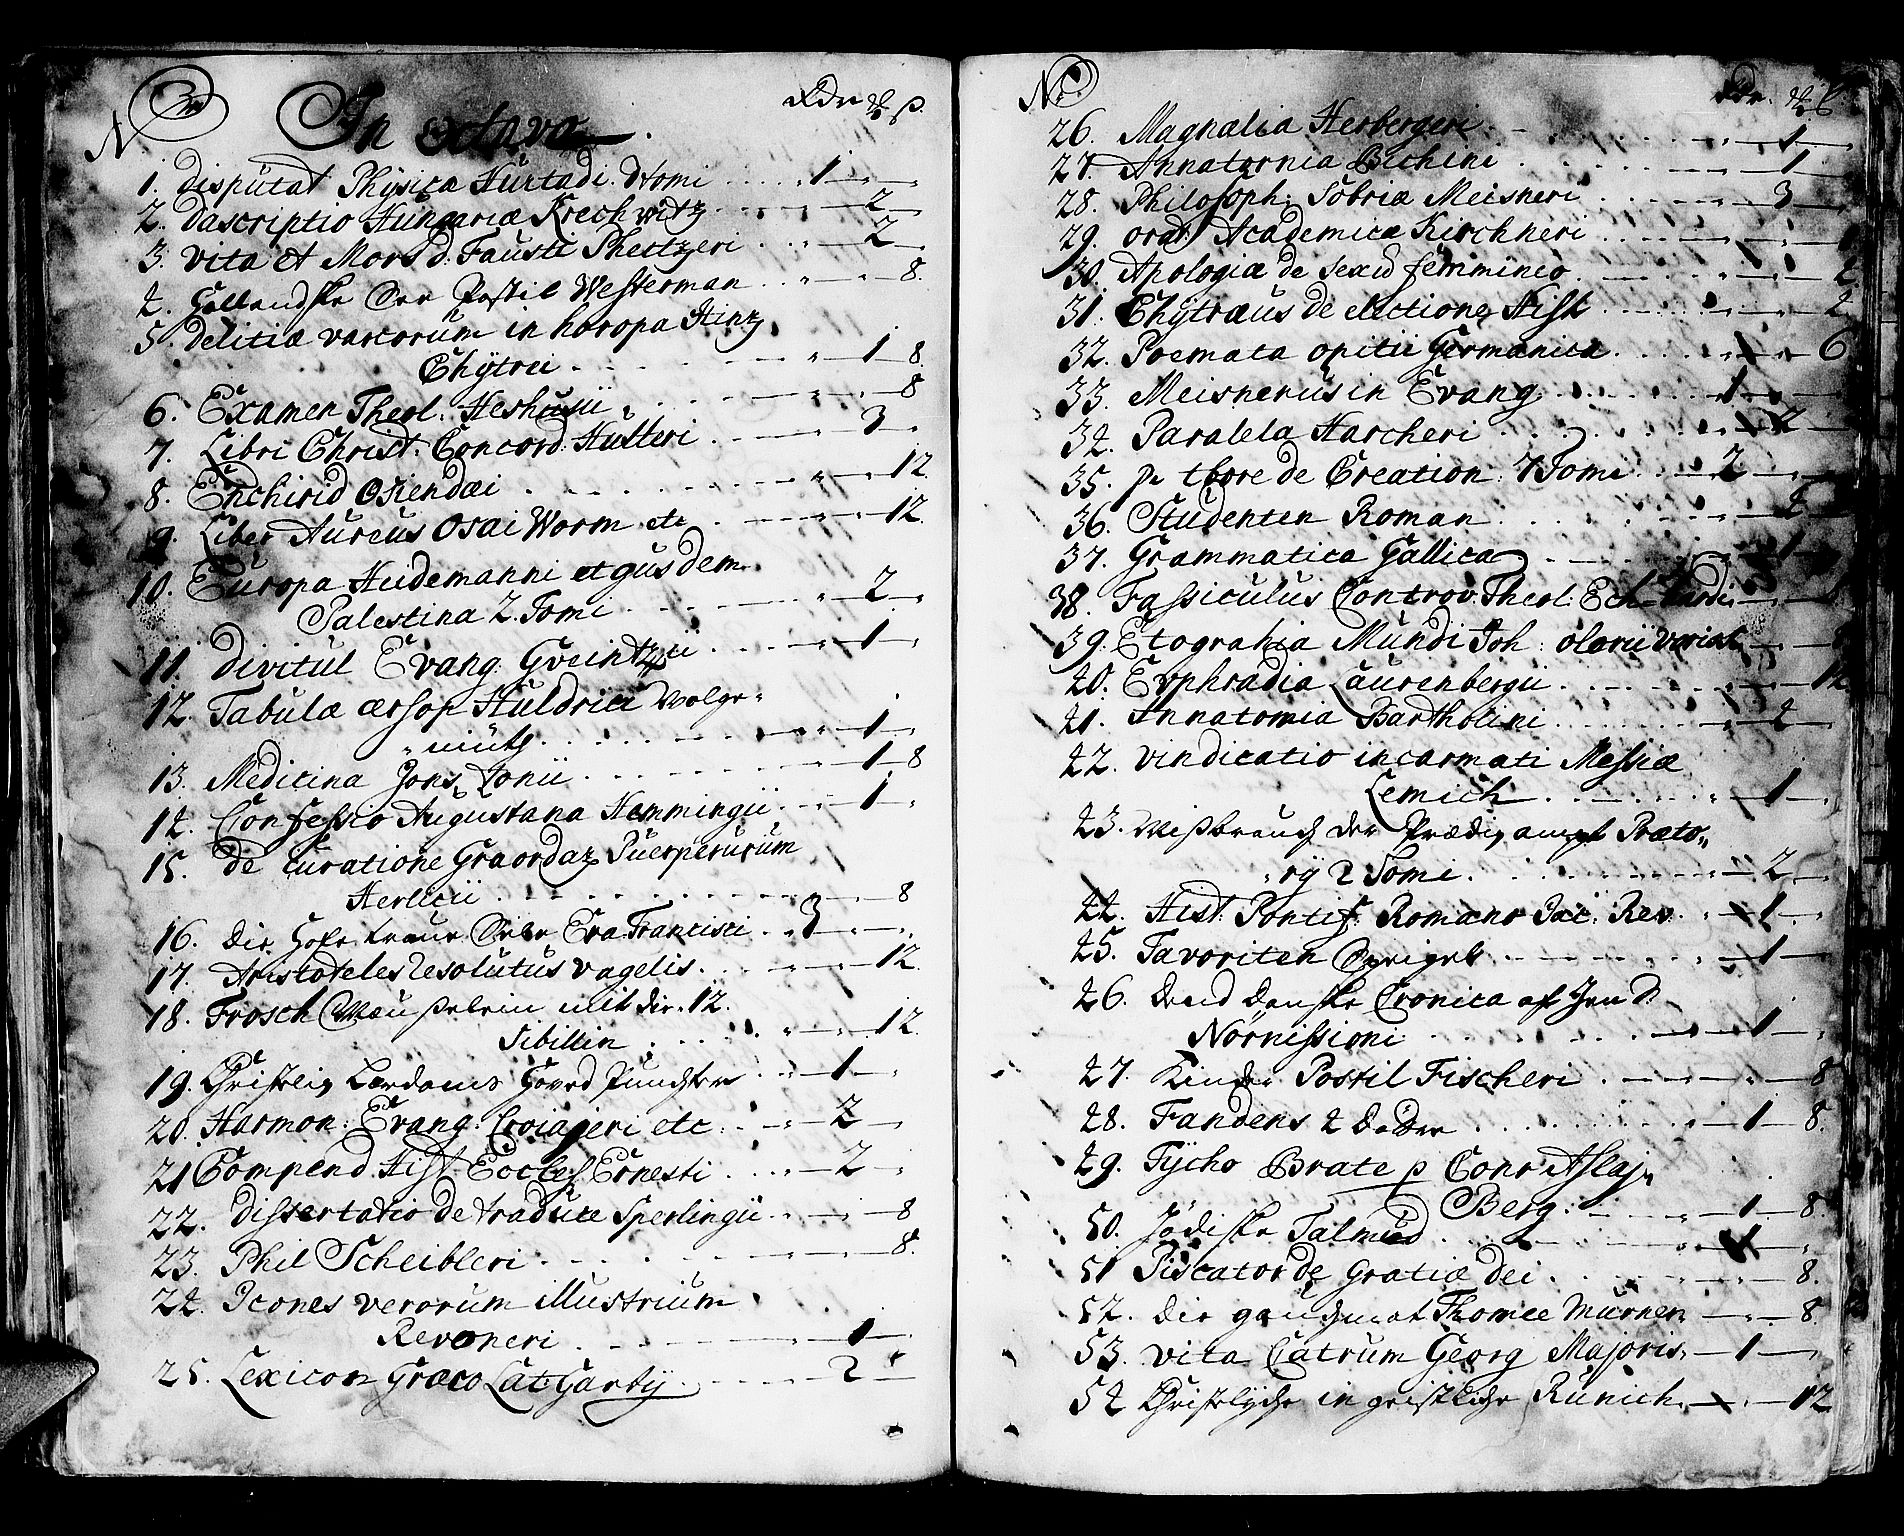 No In octavo. Rdr ß.
1. Disputat Physica Hurtadi. Tomi 1
2. Dascriptio Hungariæ Krechwitz 2
3. Vita et Mors d. Fausti Pheitzeri 2
4. Hollandske Postil Westerman 8.
5. Delitiæ variorum in horopa Itinz
Chÿtrii 1 8
6. Examen Theol. Heshusii 8
7. Libri Christ. Concord. Hutteri 3
8. Enchirid Osiendæi 12
9. Liber Aureus Osai Worm etc 12.
10. Europa Hudemanni et gusdem
Palestina 2. Tomi 2
11. Divitul Evang. 1
12. Tabulæ æsop Huldrici Wolge-
-müth 1
13. Meditina Jons Lonii 1 8
14. Confessio Augustana Hemmingii 1
15. De Curatione Graordaz Puerperurum
Herlicii 8
16. Die Eva Francisci 3
17. Aristoteles resolutus vagelis 12.
18. Frosch Meuselein mit die 12.
Sibillin 12.
19. Christelig Lærdoms Hoved Puncter 1
20. Harmon. Evang. etc 2
21 Compend. Hist. Eccles Ernesti 2
22. Dissertatio de traduce Sperlingii 8
23. Phil Scheibleri 8.
24. Icones verorum illustrium
Revoneri 1
25. Lexicon Græco Lat. 2
No Rdr.
26. Magnalia Herbergeri 1
27. Annatomia Bichini 1
28. Philosoph. Sobriæ Meisneri 3
29. orat. Academicæ Kirchneri
30. Apologiæ de sexu femmineo 2
31. Chÿtræus de elictione Hist 2
32. Poemata opitii Germanica 6
33. Meisnerus in Evang 1
34. Paralela Harcheri
35. de Creation: 7 Tomi 2
36. Studenten Roman
37. Grammatica Gallica 1
38. Fassiculus Controv. Theol.
39. Etograhia Mundi Joh: olorii
40. Evphradia Laurenbergii 12
41. Annatomia Bartholini
42. Vindicatio incarnati Messiæ
Lemich 1
43. Misbrauch der Prædig ampt Præto-
-rÿ 2 Tomi. 2
44. Hist. Pontif. Romano Jac. Rev. 1
45. Favoriten Speigel 1
46. Dend Danske Cronica af Jens
Nörnissioni 1
47. Kinder Postil Fischeri 8
48. Fandens 2 Dödre 1 8.
49. Tÿcho Brate p Conr Aslaj-
Berg. 1 8
50. Jödiske Talmud 1
51 Piscator de Gratiæ dei 8.
52. Die Thomæ Murner 8.
53. vita Catrum Georg Majoris 1
54 in geistliche Runich 12